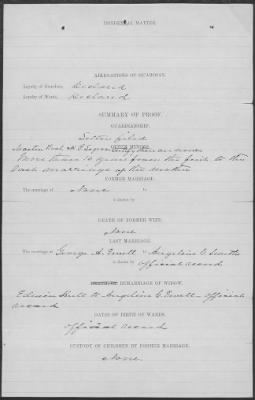 INCIDENTAL MATTER.
ALLEGATIONS OF GUARDIAN.
Loyalty of Guardian, Declared
Loyalty of Wards, Declared
SUMMARY OF PROOF.
GUARDIANSHIP.
Letter filed
OTHER MINORS.
More than 16 years from the
marriage of the mother
FORMER MARRIAGE.
The marriage of None to
is shown by
DEATH OF FORMER WIFE.
None
LAST MARRIAGE.
The marriage of George A. to Angeline C. Smith
is shown by official record
REMARRIAGE OF WIDOW.
Edwin to Angeline C. official
record
DATES OF BIRTH OF WARDS.
official record
CUSTODY OF CHILDREN BY FORMER MARRIAGE.
None